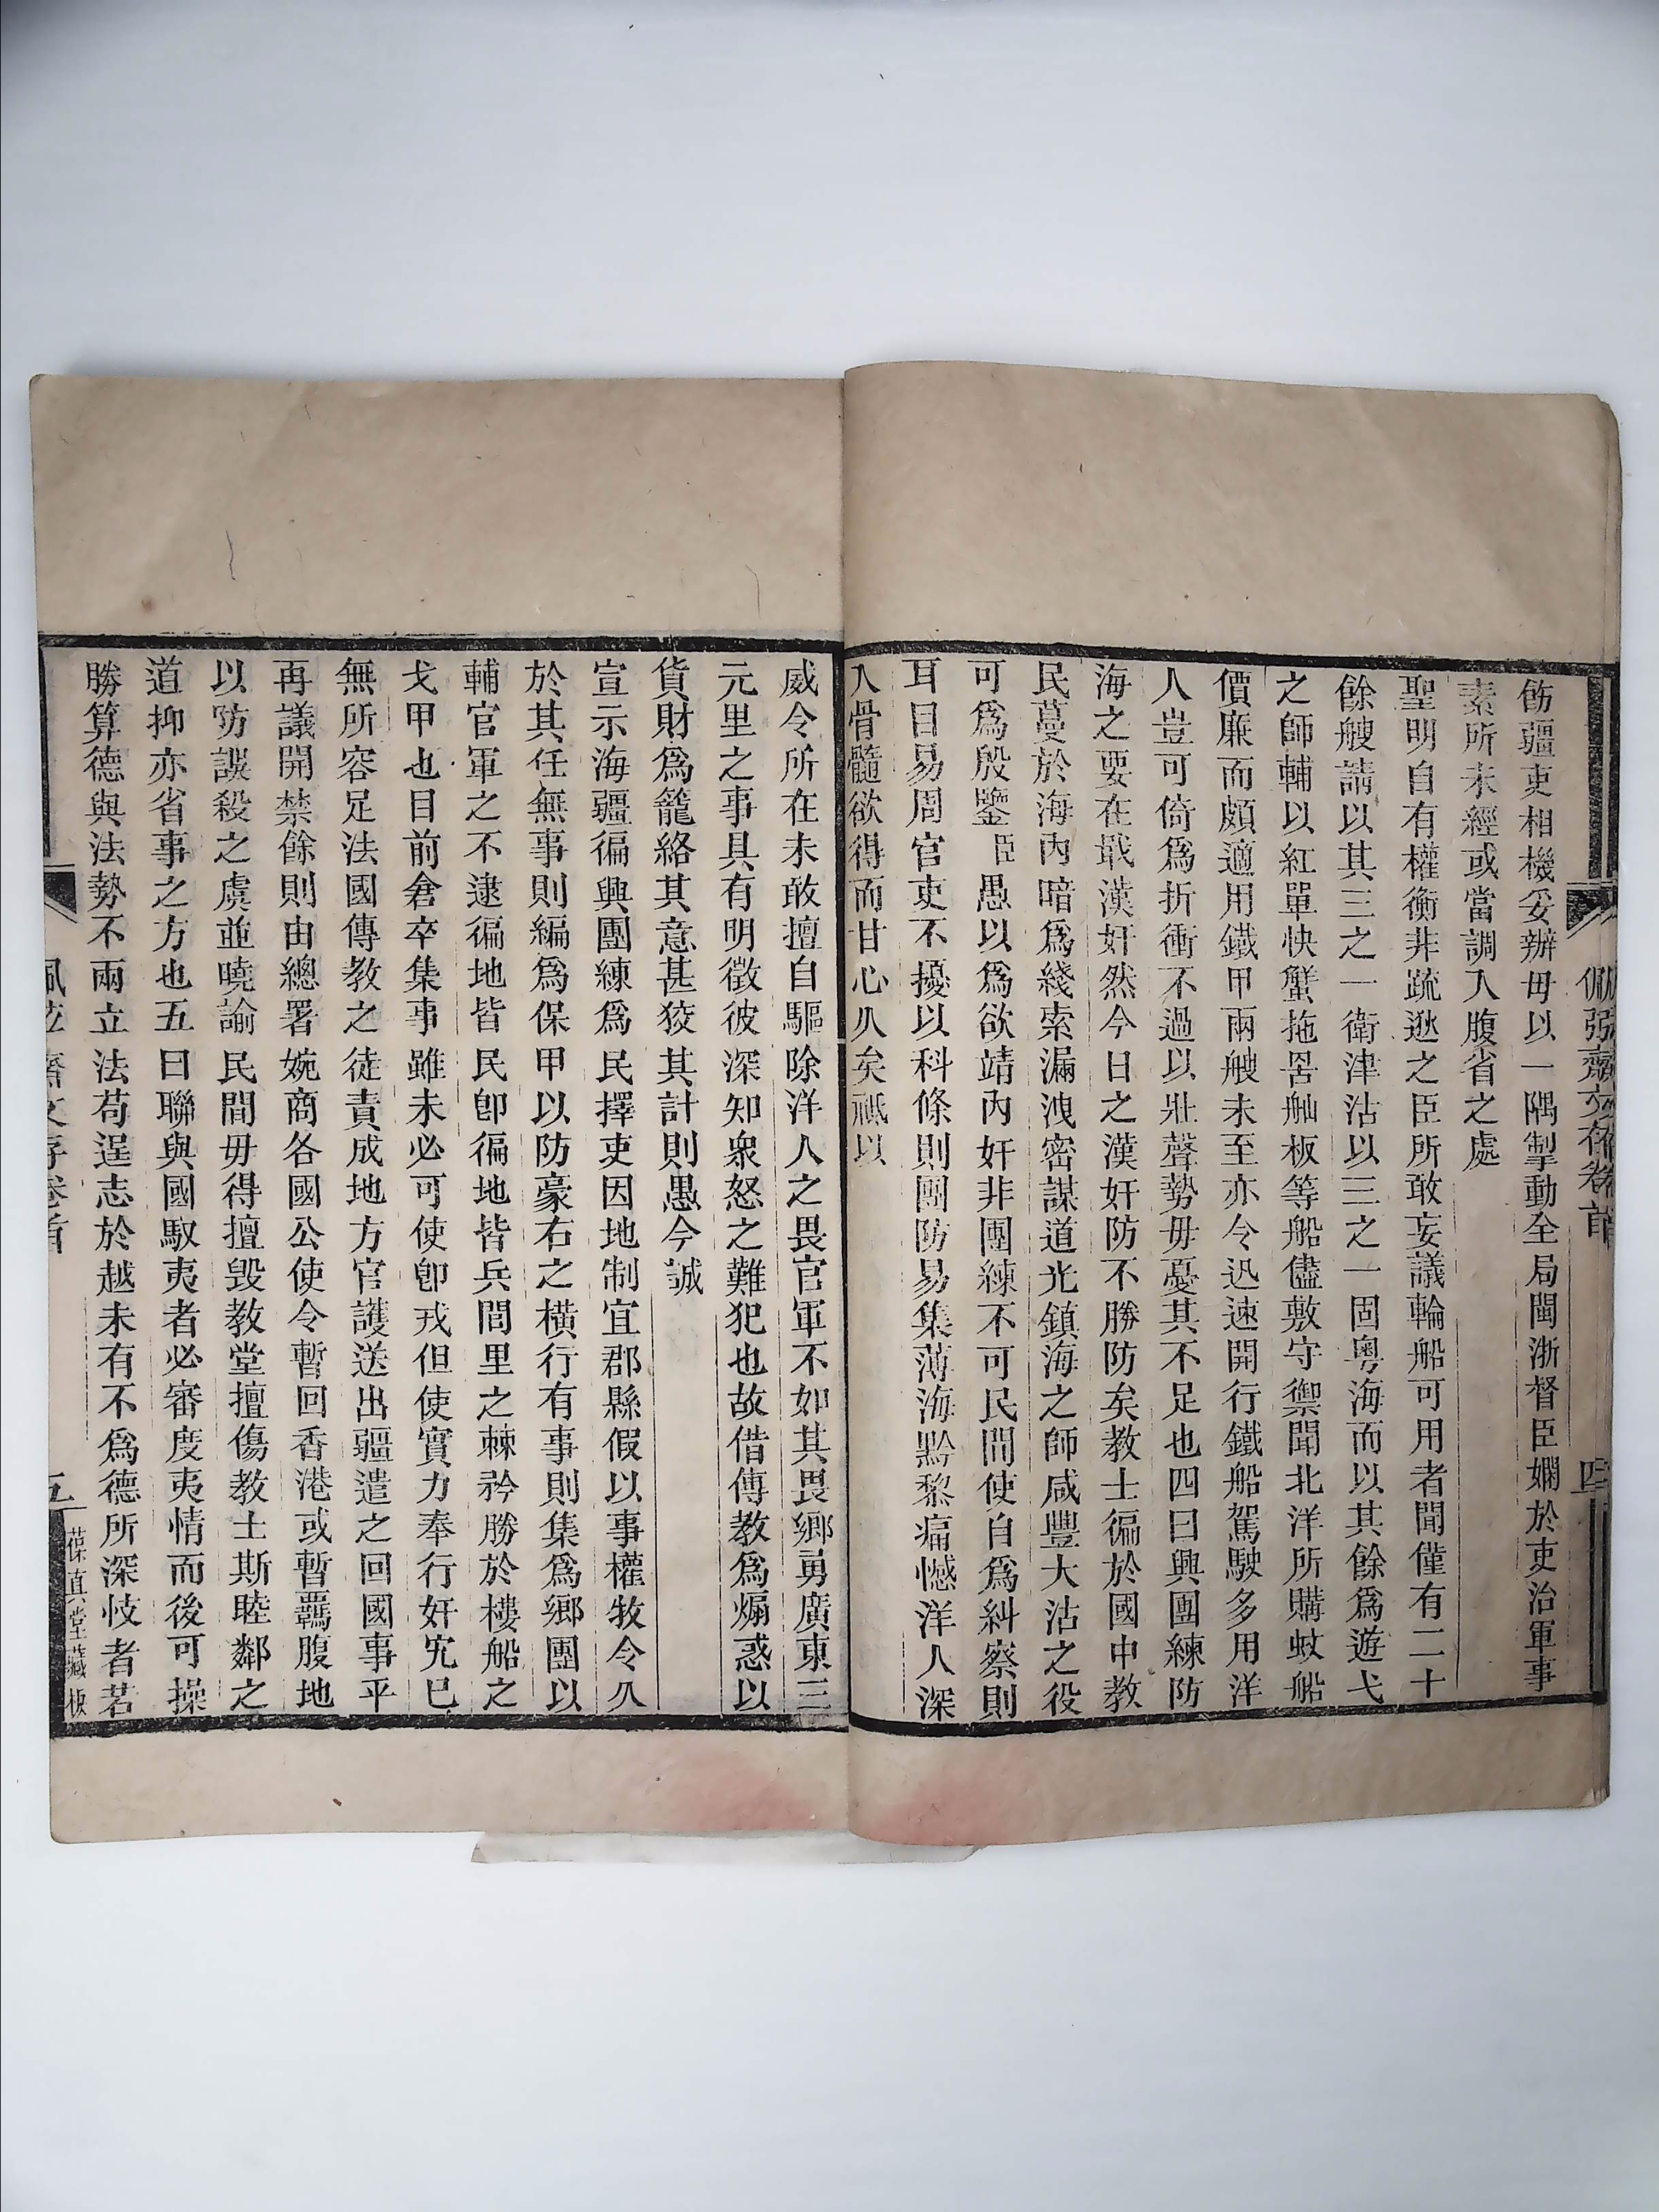 佩弦齋文存卷首
四
飭疆吏相機妥辦毋以一隅掣動全局閩浙督臣嫻於吏治軍事
素所未經或當調入腹省之處
聖明自有權衡非疏逖之臣所敢妄議輪船可用者聞僅有二十
餘艘請以其三之一衛津沽以三之一固粵海而以其餘爲遊弋
之師輔以紅單快蟹拖罟舢板等船儘敷守禦聞北洋所購蚊船
價廉而頗適用鐵甲兩艘未至亦令迅速開行鐵船駕駛多用洋
人豈可倚爲折衝不過以壯聲勢毋憂其不足也四曰興團練防
海之要在戢漢奸然今日之漢奸防不勝防矣教士徧於國中教
民蔓於海內暗爲綫索漏洩密謀道光鎮海之師咸豐大沽之役
可爲殷鑒臣愚以爲欲靖內奸非團練不可民間使自爲糾察則
耳目易周官吏不擾以科條則團防易集薄海黔黎痛憾洋人深
入骨髓欲得而甘心久矣祗以
威令所在未敢擅自驅除洋人之畏官軍不如其畏鄉勇廣東三
元里之事具有明徵彼深知衆怒之難犯也故借傳教爲煽惑以
貨財爲籠絡其意甚狡其計則愚今誠
宣示海疆徧興團練爲民擇吏因地制宜郡縣假以事權牧令久
於其任無事則編爲保甲以防豪右之橫行有事則集爲鄉團以
輔官軍之不逮徧地皆民卽徧地皆兵閭里之棘矜勝於樓船之
戈甲也目前倉卒集事雖未必可使卽戎但使實力奉行奸宄已
無所容足法國傳教之徒責成地方官護送出疆遣之回國事平
再議開禁餘則由總署婉商各國公使令暫回香港或暫羈腹地
以防誤殺之虞並曉諭民間毋得擅毀教堂擅傷教士斯睦鄰之
道抑亦省事之方也五曰聯與國馭夷者必審度夷情而後可操
勝算德與法勢不兩立法苟逞志於越未有不爲德所深忮者若
佩弦齋文存卷首
五
葆真堂藏板